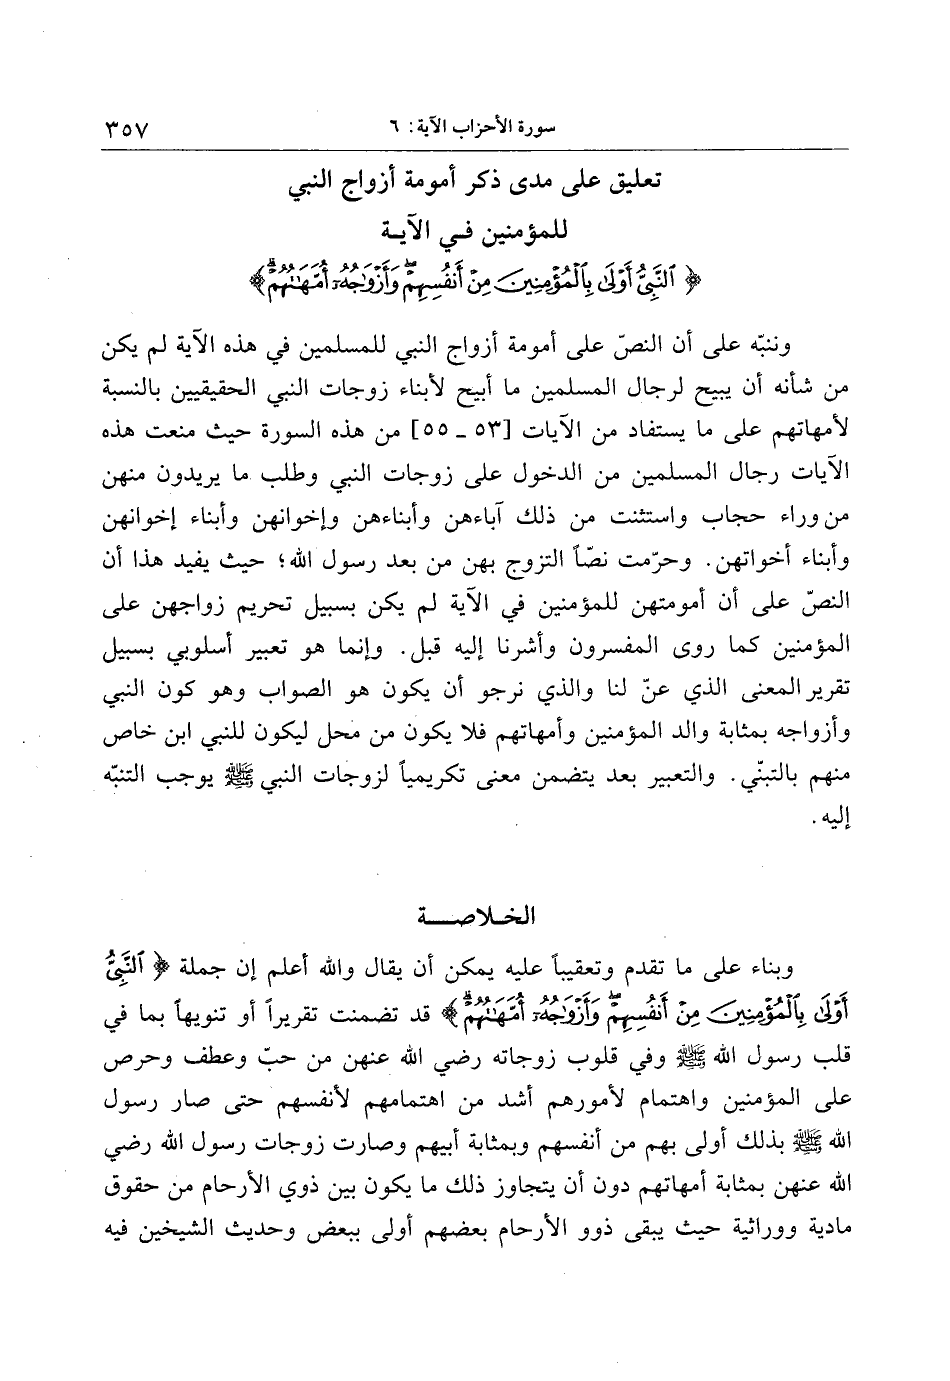 سورة الأحزاب الآية: ٦ ٣٥٧
تعليق على مدى ذكر أمومة أزواج النبي
للمؤمنين في الآية
﴿ ٱلنَّبِيُّ أَوۡلَىٰ بِٱلۡمُؤۡمِنِينَ مِنۡ أَنفُسِهِمۡۖ وَأَزۡوَٰجُهُۥٓ أُمَّهَٰتُهُمۡۗ ﴾
وننبّه على أن النصّ على أمومة أزواج النبي للمسلمين في هذه الآية لم يكن
من شأنه أن يبيح لرجال المسلمين ما أبيح لأبناء زوجات النبي الحقيقيين بالنسبة
لأمهاتهم على ما يستفاد من الآيات [٥٣ ـ ٥٥] من هذه السورة حيث منعت هذه
الآيات رجال المسلمين من الدخول على زوجات النبي وطلب ما يريدون منهن
من وراء حجاب واستثنت من ذلك آباءهن وأبناءهن وإخوانهن وأبناء إخوانهن
وأبناء أخواتهن. وحرّمت نصّاً التزوج بهن من بعد رسول الله؛ حيث يفيد هذا أن
النصّ على أن أمومتهن للمؤمنين في الآية لم يكن بسبيل تحريم زواجهن على
المؤمنين كما روى المفسرون وأشرنا إليه قبل. وإنما هو تعبير أسلوبي بسبيل
تقرير المعنى الذي عنّ لنا والذي نرجو أن يكون هو الصواب وهو كون النبي
وأزواجه بمثابة والد المؤمنين وأمهاتهم فلا يكون من محل ليكون للنبي ابن خاص
منهم بالتبنّي. والتعبير بعد يتضمن معنى تكريمياً لزوجات النبي ﷺ يوجب التنبّه
إليه.
الخلاصة
وبناء على ما تقدم وتعقيباً عليه يمكن أن يقال والله أعلم إن جملة ﴿ ٱلنَّبِيُّ
أَوۡلَىٰ بِٱلۡمُؤۡمِنِينَ مِنۡ أَنفُسِهِمۡۖ وَأَزۡوَٰجُهُۥٓ أُمَّهَٰتُهُمۡۗ ﴾ قد تضمنت تقريراً أو تنويهاً بما في
قلب رسول الله ﷺ وفي قلوب زوجاته رضي الله عنهن من حبّ وعطف وحرص
على المؤمنين واهتمام لأمورهم أشد من اهتمامهم لأنفسهم حتى صار رسول
الله ﷺ بذلك أولى بهم من أنفسهم وبمثابة أبيهم وصارت زوجات رسول الله رضي
الله عنهن بمثابة أمهاتهم دون أن يتجاوز ذلك ما يكون بين ذوي الأرحام من حقوق
مادية ووراثية حيث يبقى ذوو الأرحام بعضهم أولى ببعض وحديث الشيخين فيه